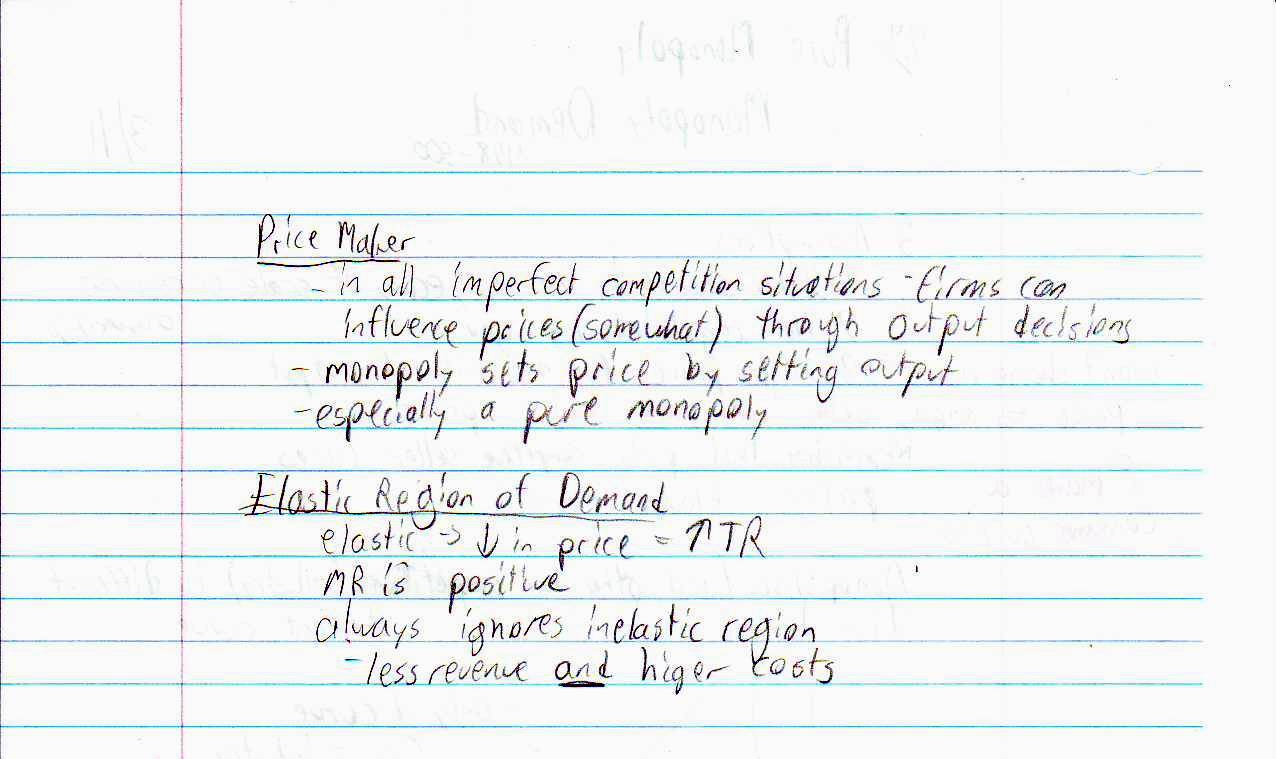 Price Maker
- in all imperfect competition situations - firms can
influence prices (somewhat) through output decisions
- monopoly sets price by setting output
- especially a pure monopoly
Elastic Region of Demand
elastic -> ↓ in price = ↑ TR
MR is positive
always ignores inelastic region
- less revenue and higer costs